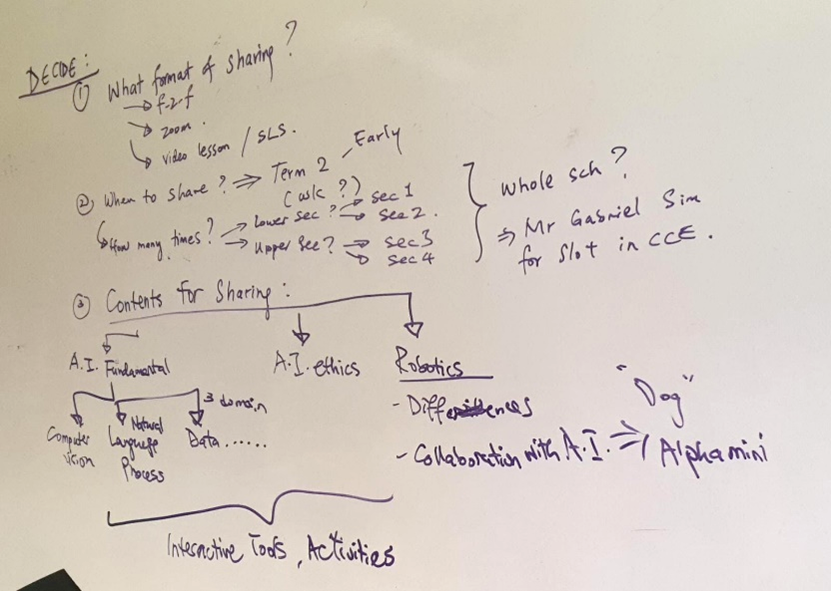 DECIDE:
① What format of sharing?
→ f-2-f
→ zoom.
→ video lesson / SLS.
② When to share? ⇒ Term 2 Early
(wk ?)
↳ How many times? → Lower sec? → sec 1
→ sec 2.
→ Upper sec? → sec 3
→ sec 4
Whole sch?
⇒ Mr Gabriel Sim
for slot in CCE.
③ Contents for Sharing:
A.I. Fundamental
3 domain
Computer
vision
Natural
Language
Process
Data......
A.I. ethics
Robotics
- Differences
- Collaboration with A.I. ⇒
"Dog"
Alphamini
Interactive Tools, Activities